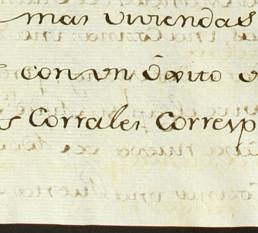 mas viviendas
con un Oxito
Corrales Corresp